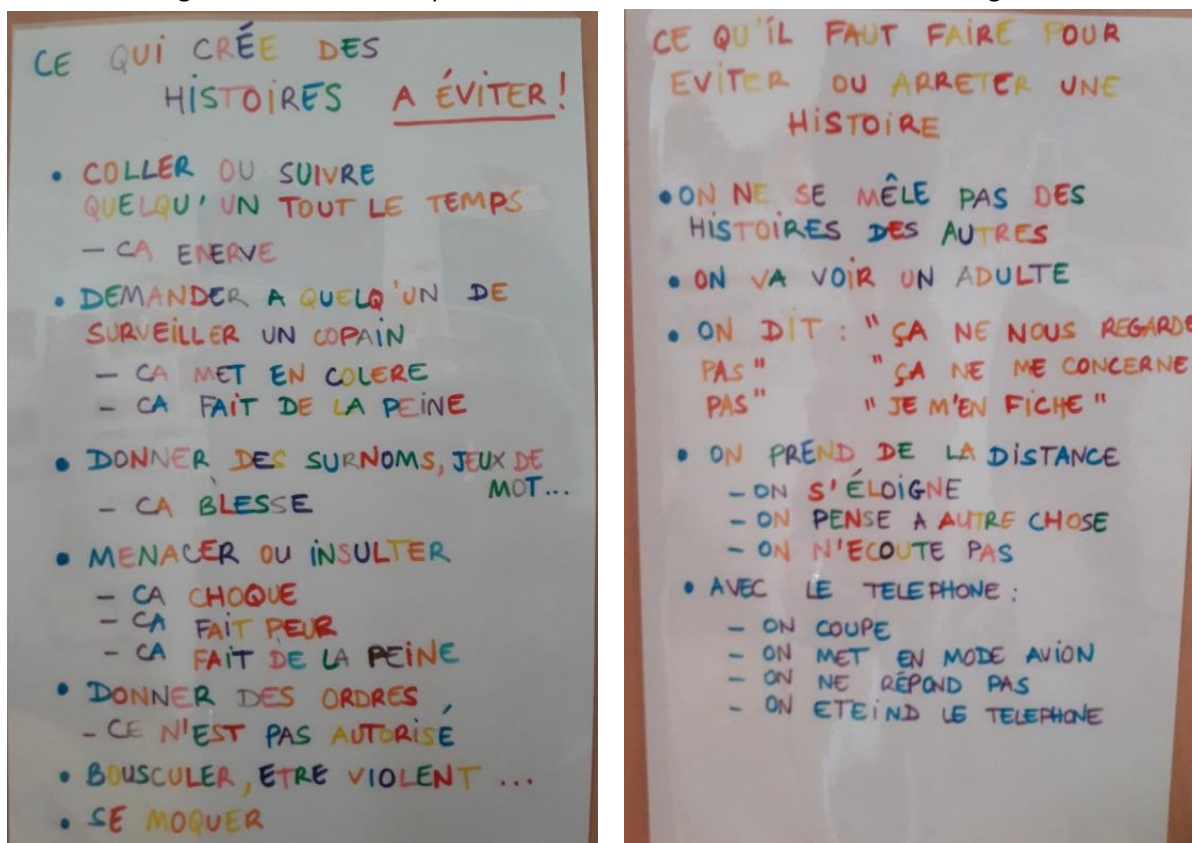 CE QUI CRÉE DES
HISTOIRES A ÉVITER !
• COLLER OU SUIVRE
QUELQU'UN TOUT LE TEMPS
– CA ENERVE
• DEMANDER A QUELQ'UN DE
SURVEILLER UN COPAIN
– CA MET EN COLERE
– CA FAIT DE LA PEINE
• DONNER DES SURNOMS, JEUX DE
MOT...
– CA BLESSE
• MENACER OU INSULTER
– CA CHOQUE
– CA FAIT PEUR
– CA FAIT DE LA PEINE
• DONNER DES ORDRES
– CE N'EST PAS AUTORISÉ
• BOUSCULER, ETRE VIOLENT ...
• SE MOQUER
CE QU'IL FAUT FAIRE POUR
EVITER OU ARRETER UNE
HISTOIRE
• ON NE SE MÊLE PAS DES
HISTOIRES DES AUTRES
• ON VA VOIR UN ADULTE
• ON DIT : " ÇA NE NOUS REGARDE
PAS " " ÇA NE ME CONCERNE
PAS " " JE M'EN FICHE "
• ON PREND DE LA DISTANCE
– ON S'ÉLOIGNE
– ON PENSE A AUTRE CHOSE
– ON N'ECOUTE PAS
• AVEC LE TELEPHONE :
– ON COUPE
– ON MET EN MODE AVION
– ON NE RÉPOND PAS
– ON ETEIND LE TELEPHONE